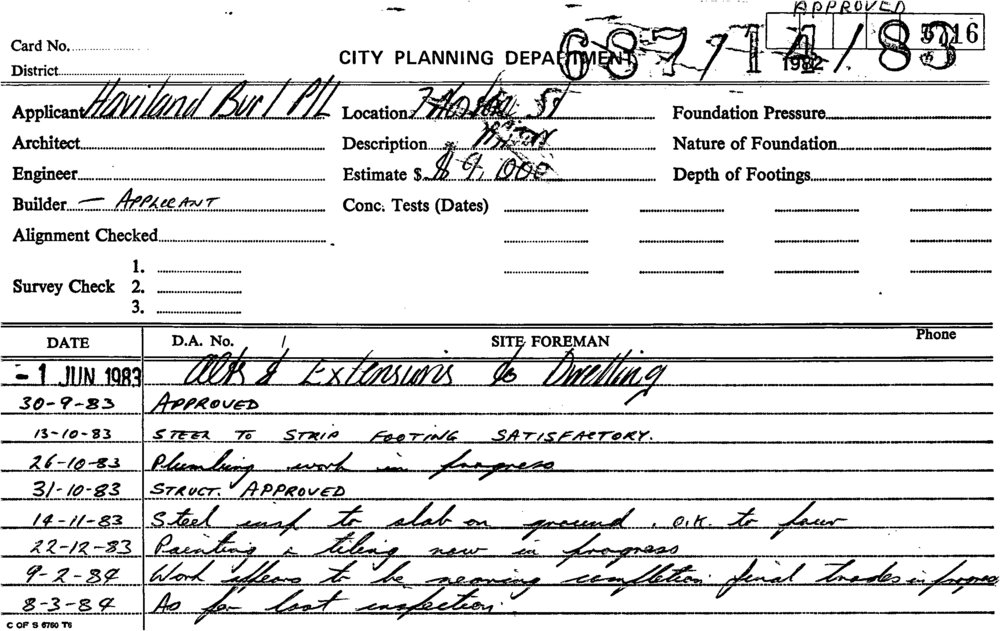 APPROVED
Card No.
687/14/83
CITY PLANNING DEPARTMENT
District
Applicant Haviland Bur / P/L Location St Foundation Pressure
Architect Description Nature of Foundation
Engineer Estimate $ $ 9,000 Depth of Footings
Builder — APPLICANT Conc. Tests (Dates)
Alignment Checked
1.
Survey Check 2.
3.
DATE D.A. No. / SITE FOREMAN Phone
- 1 JUN 1983 Alts & Extensions to Dwelling
30-9-83 APPROVED
13-10-83 STEEL TO STRIP FOOTING SATISFACTORY.
26-10-83 Plumbing work in progress
31-10-83 STRUCT. APPROVED
14-11-83 Steel insp to slab on ground . O.K. to pour
22-12-83 Painting & tiling now in progress
9-2-84 Work appears to be nearing completion. final trades in progress
8-3-84 As per last inspection.
C OF S 6760 T6